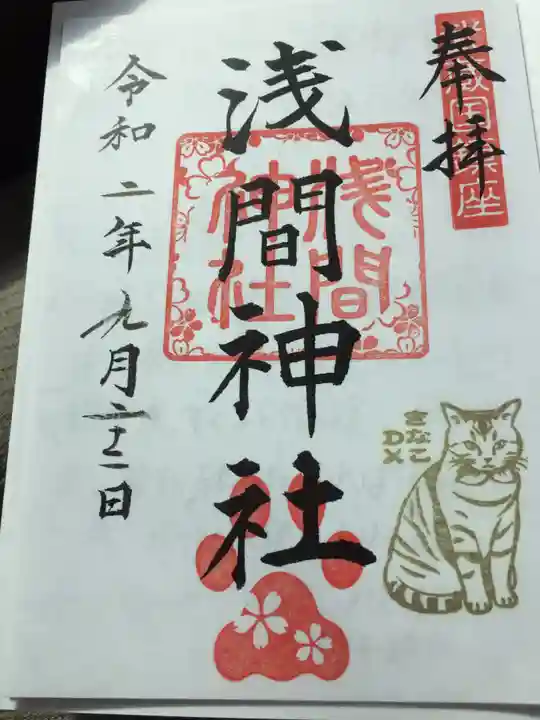 奉拝
武蔵国鎮座
浅間神社
浅間
神社
令和二年九月二十二日
きなこ
DX